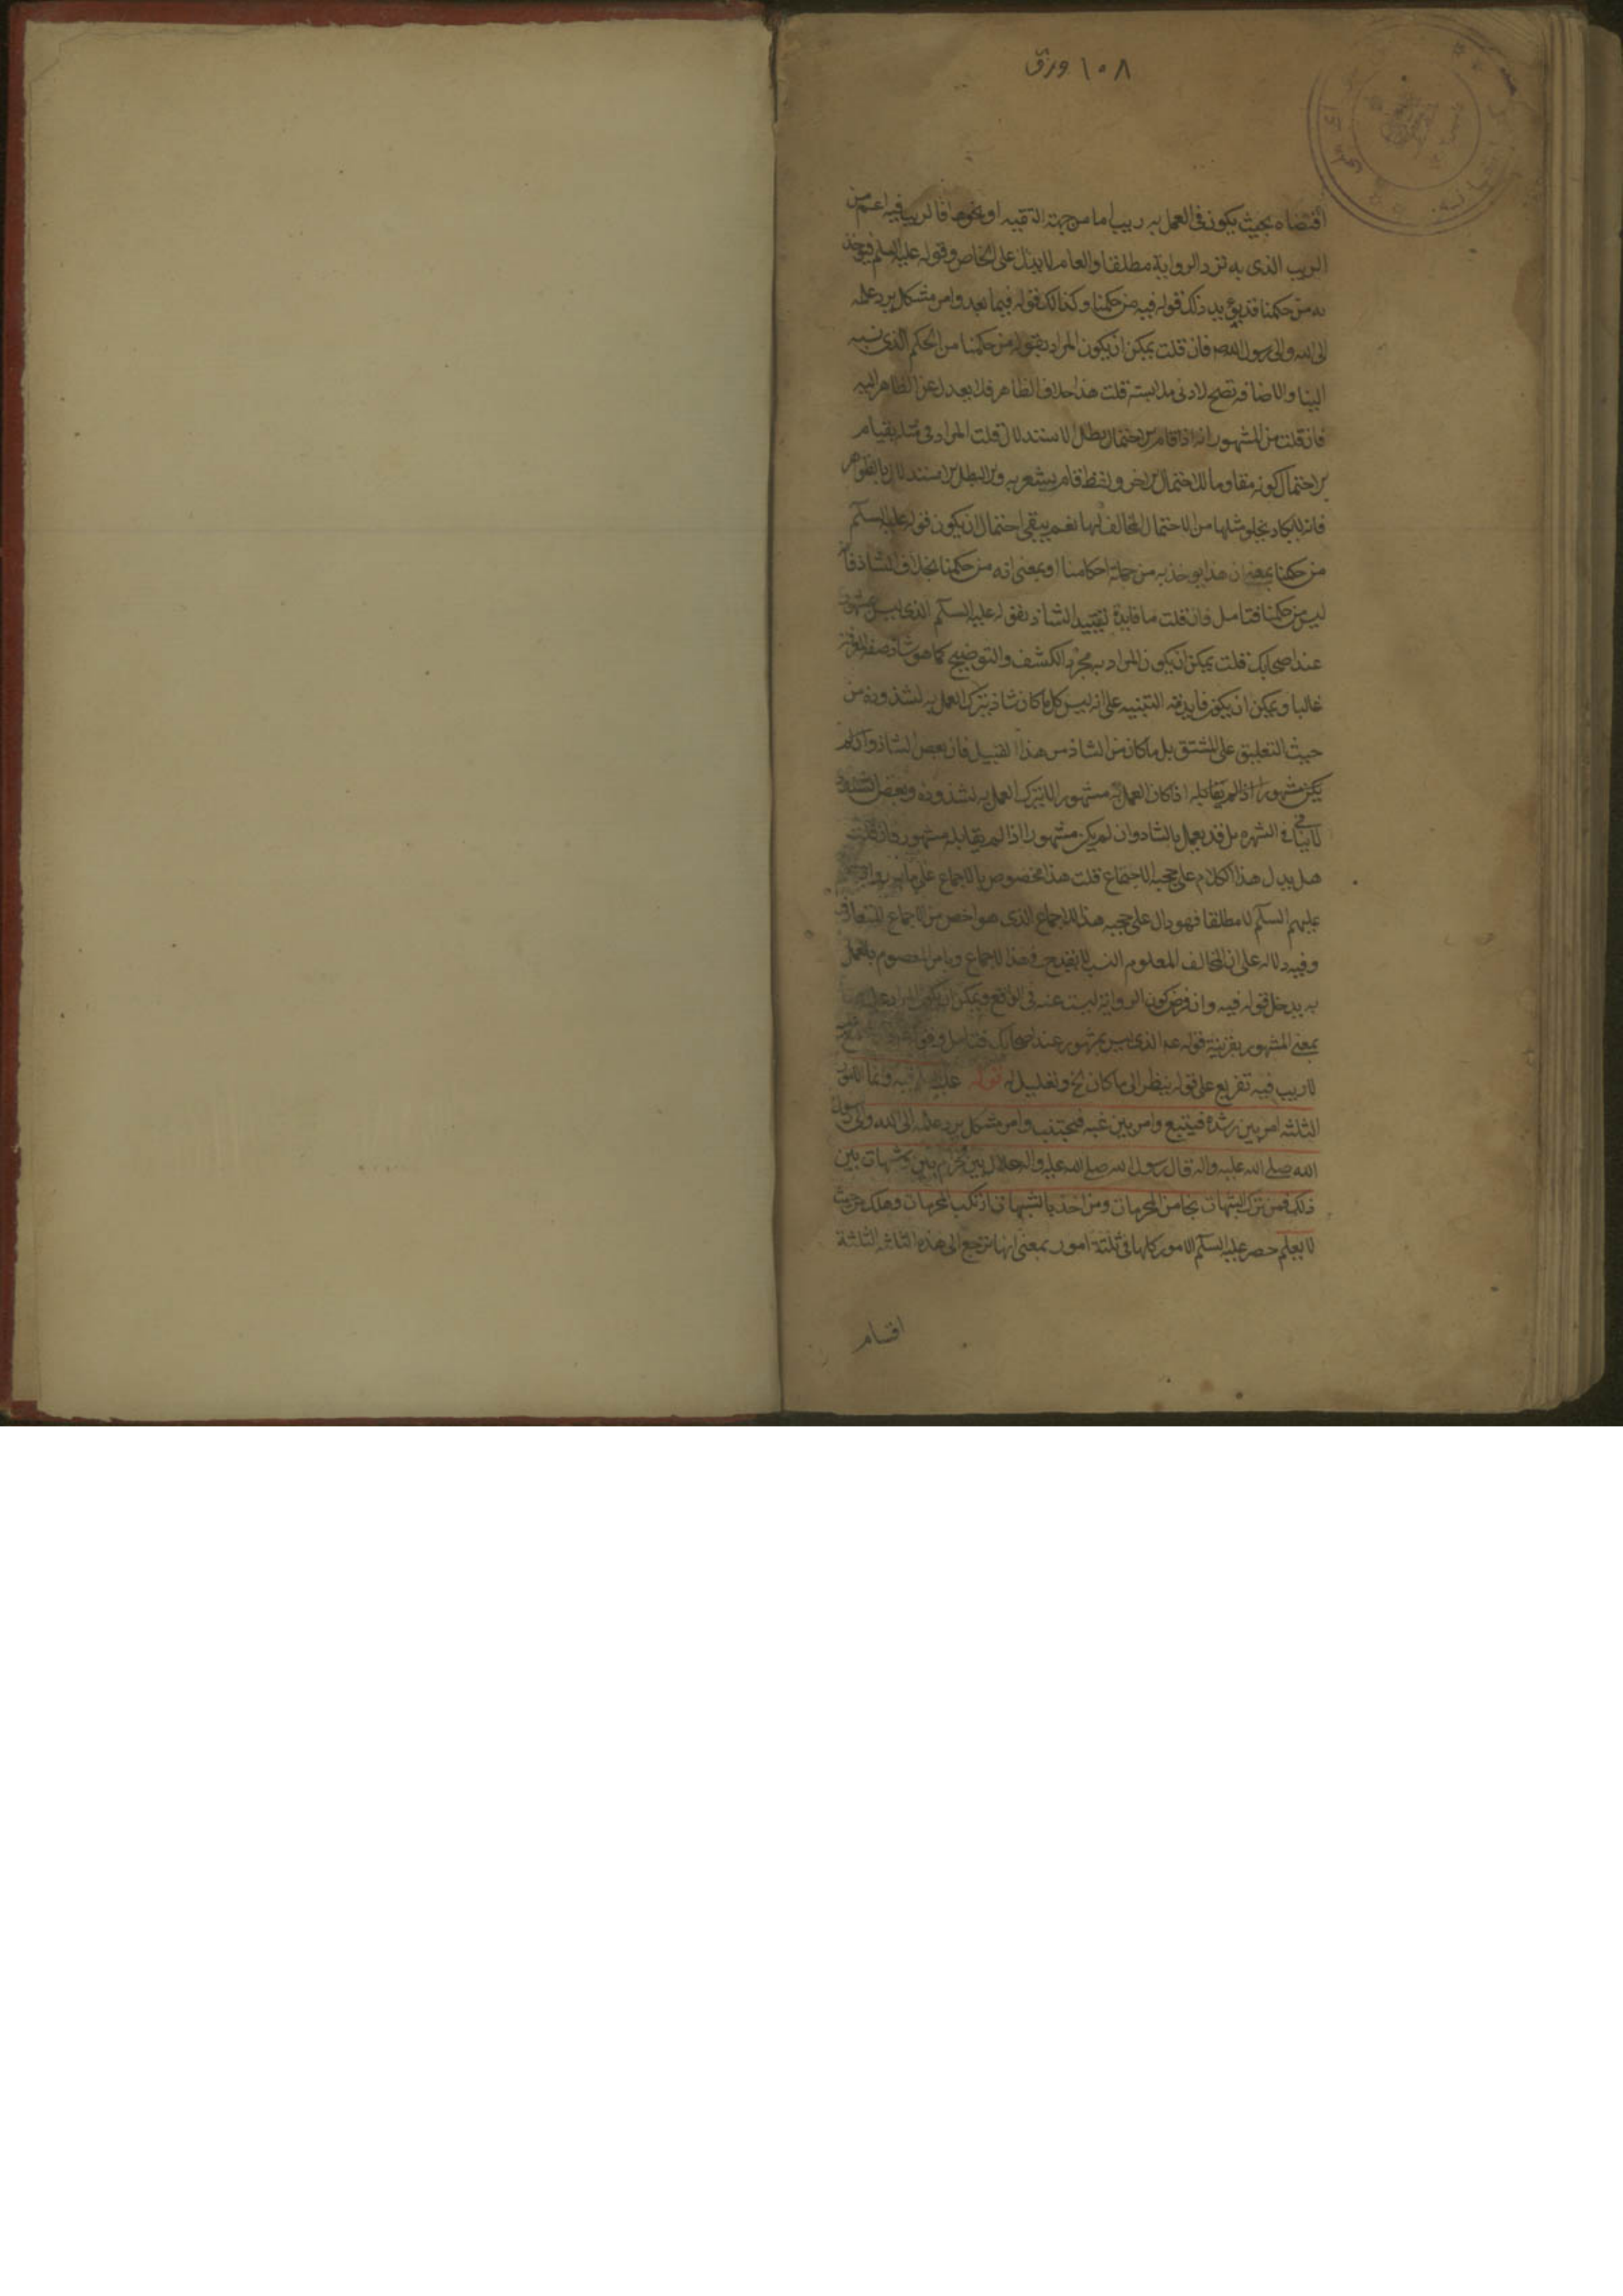 ١٠٨ ورق
اقتضاه بحيث يكون فى العمل به ريب اما من جهة التقيه او نحوها فالريب فيه اعم من
الريب الذى به ترد الرواية مطلقا والعام لا يدل على الخاص وقوله عليه السلم فيوخذ
به من حكمنا قد يؤيد ذلك قوله فيه من حكمنا وكذلك قوله فيما بعد وامر مشكل يرد علمه
الى الله والى رسول الله ص فان قلت يمكن ان يكون المراد بقوله من حكمنا من الحكم الذى نسبه
الينا والاضافه تصح لادنى ملابسته قلت هذا خلاف الظاهر فلا يعدل عن الظاهر اليه
فان قلت من المشهور انه اذا قام الاحتمال بطل الاستدلال قلت المراد فى مثله بقيام
الاحتمال كونه مقاوما للاحتمال الاخر ولفظ قام يشعر به والا لبطل الاستدلال بالظواهر
فانه لا يكاد يخلو مثلها من الاحتمال المخالف لها نعم يبقى احتمال ان يكون قوله عليه السلم
من حكمنا بمعنى ان هذا يوخذ به من جملة احكامنا او بمعنى انه من حكمنا بخلاف الشاذ فانه
ليس من حكمنا فتامل فان قلت ما فايدة تقييد الشاذ بقوله عليه السلم الذى ليس بمشهور
عند اصحابك قلت يمكن ان يكون المراد به مجرد الكشف والتوضيح كما هو شان صفة المعرفة
غالبا ويمكن ان يكون فايدته التنبيه على انه ليس كل ما كان شاذ يترك العمل به لشذوذه من
حيث التعليق على المشتق بل ما كان من الشاذ من هذا القبيل فان بعض الشاذ وان لم
يكن مشهورا اذا لم يقابله اذا كان العمل به مشهورا لا يترك العمل به لشذوذه وبعض الشذوذ
لا ينافى الشهره بل قد يعمل بالشاذ وان لم يكن مشهورا اذا لم يقابله مشهور فان قلت
هل يدل هذا الكلام على حجية الاجماع قلت هذا مخصوص بالاجماع على ما
عليهم السلم لا مطلقا فهو دال على حجيه هذا الاجماع الذى هو اخص من الاجماع المتعارف
وفيه دلاله على ان المخالف المعلوم النسب لا يقدح فى هذا الاجماع وبامر المعصوم بالعمل
به يدخل قوله فيه وان فرض كون الرواية ليست عنه فى الواقع ويمكن ان يكون المراد
بمعنى المشهور بقرينة قوله ع الذى ليس بمشهور عند اصحابك فتامل وقوله
لا ريب فيه تفريع على قوله ينظر الى ما كان الخ وتعليل له قوله عليه السلم فيه وانما الامور
الثلثه امر بين رشده فيتبع وامر بين غيه فيجتنب وامر مشكل يرد علمه الى الله والى رسول
الله صلى الله عليه واله قال رسول الله صلى الله عليه واله حلال بين وحرام بين وشبهات بين
ذلك فمن ترك الشبهات نجا من المحرمات ومن اخذ بالشبهات ارتكب المحرمات وهلك من حيث
لا يعلم حصر عليه السلم الامور كلها فى ثلثة امور بمعنى انها ترجع الى هذه الثلثة
اقسام